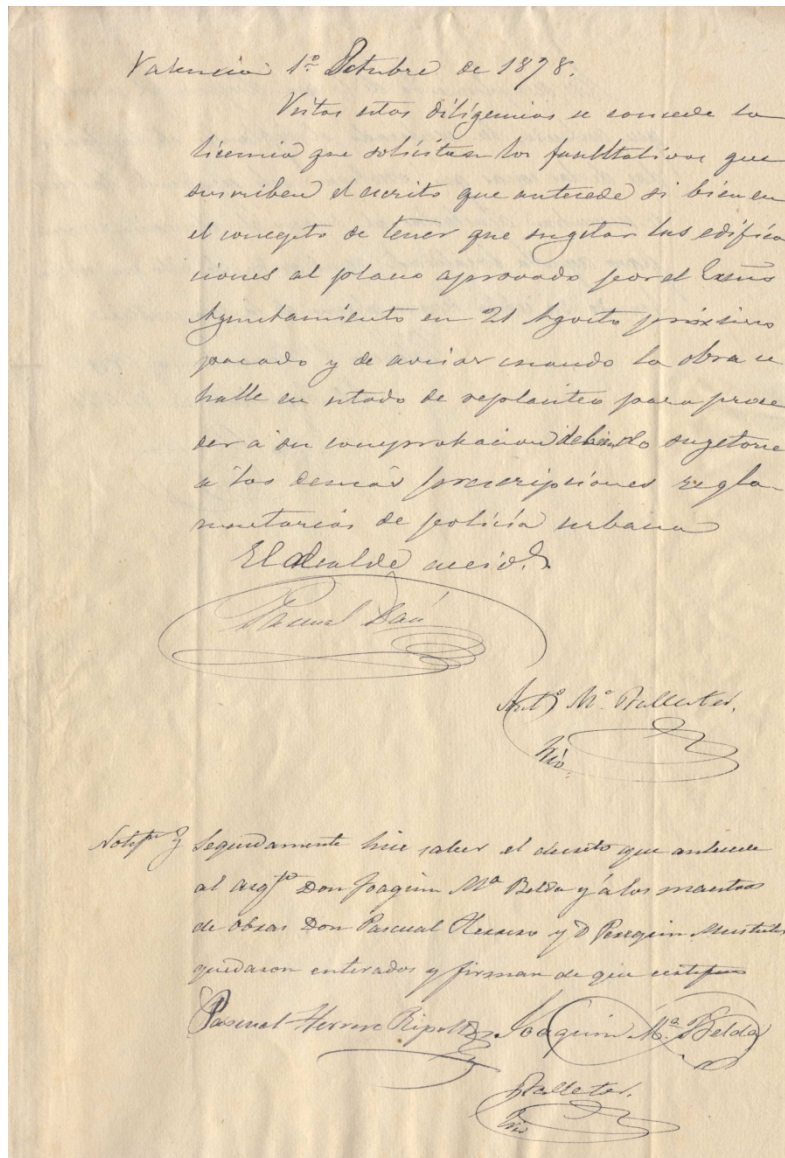 Valencia 1º Octubre de 1878.
Vistas estas diligencias se concede la
licencia que solicitan los facultativos que
suscriben el escrito que antecede si bien en
el concepto de tener que sugetar las edifica
ciones al plano aprovado por el Exmo
Ayuntamiento en 21 Agosto próximo
pasado y de avisar cuando la obra se
halle en estado de replanteo para proce
der á su comprobacion debiendo sugetarse
a las demás prescripciones regla-
mentarias de policía urbana
El Alcalde accid.
Pascual Dasí
Antº Mª Ballester.
Srio.
Notifon Seguidamente hice saber el decreto que antecede
al arqto Don Joaquin Mª Belda y á los maestros
de obras Don Pascual Herrero y D Peregin Mustieles
quedaron enterados y firman de que certifico
Pascual Herrero Ripoll Joaquin Mª Belda
Ballester.
Srio